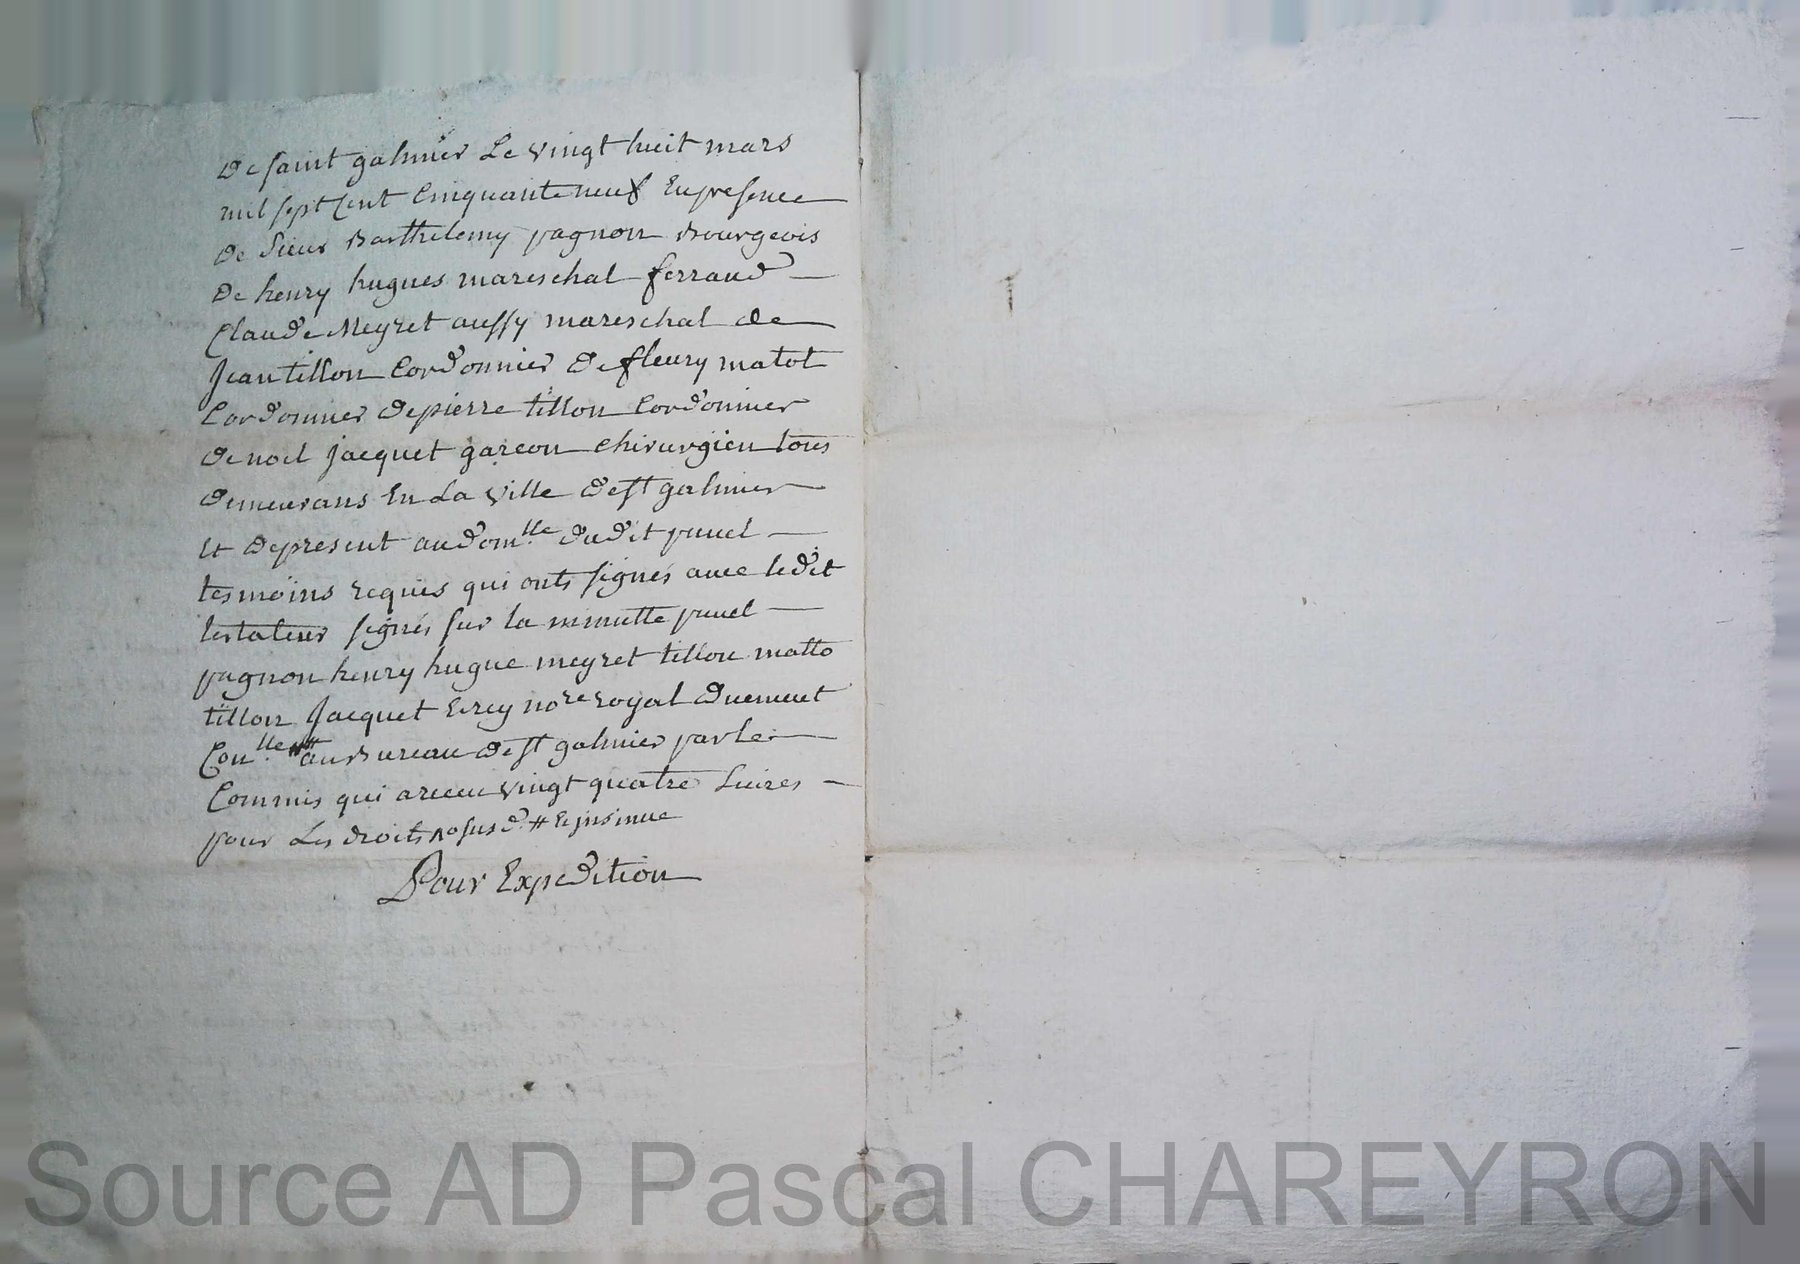 De saint galmier Le vingt huit mars
mil sept Cent Cinquante neuf En presence
De sieur Barthelemy pagnon Bourgeois
De henry hugues mareschal ferrand
Claude Meyret aussy mareschal de
Jean tillon Cordonnier De fleury matot
Cordonnier de pierre tillon Cordonnier
De noel Jacquet garcon chirurgien tous
Demeurans En La ville de st galmier
Et de present au dom.lle dudit punel
tesmoins requis qui onts signés avec ledit
testateur signés sur la minutte punel
pagnon henry hugue meyret tillon matto
tillon Jacquet & rey no.re royal Duement
Con.lle # au Bureau de st galmier par le
Commis qui a receu vingt quatre Livres
pour Les droits # & insinue
Pour Expedition
Source AD Pascal CHAREYRON